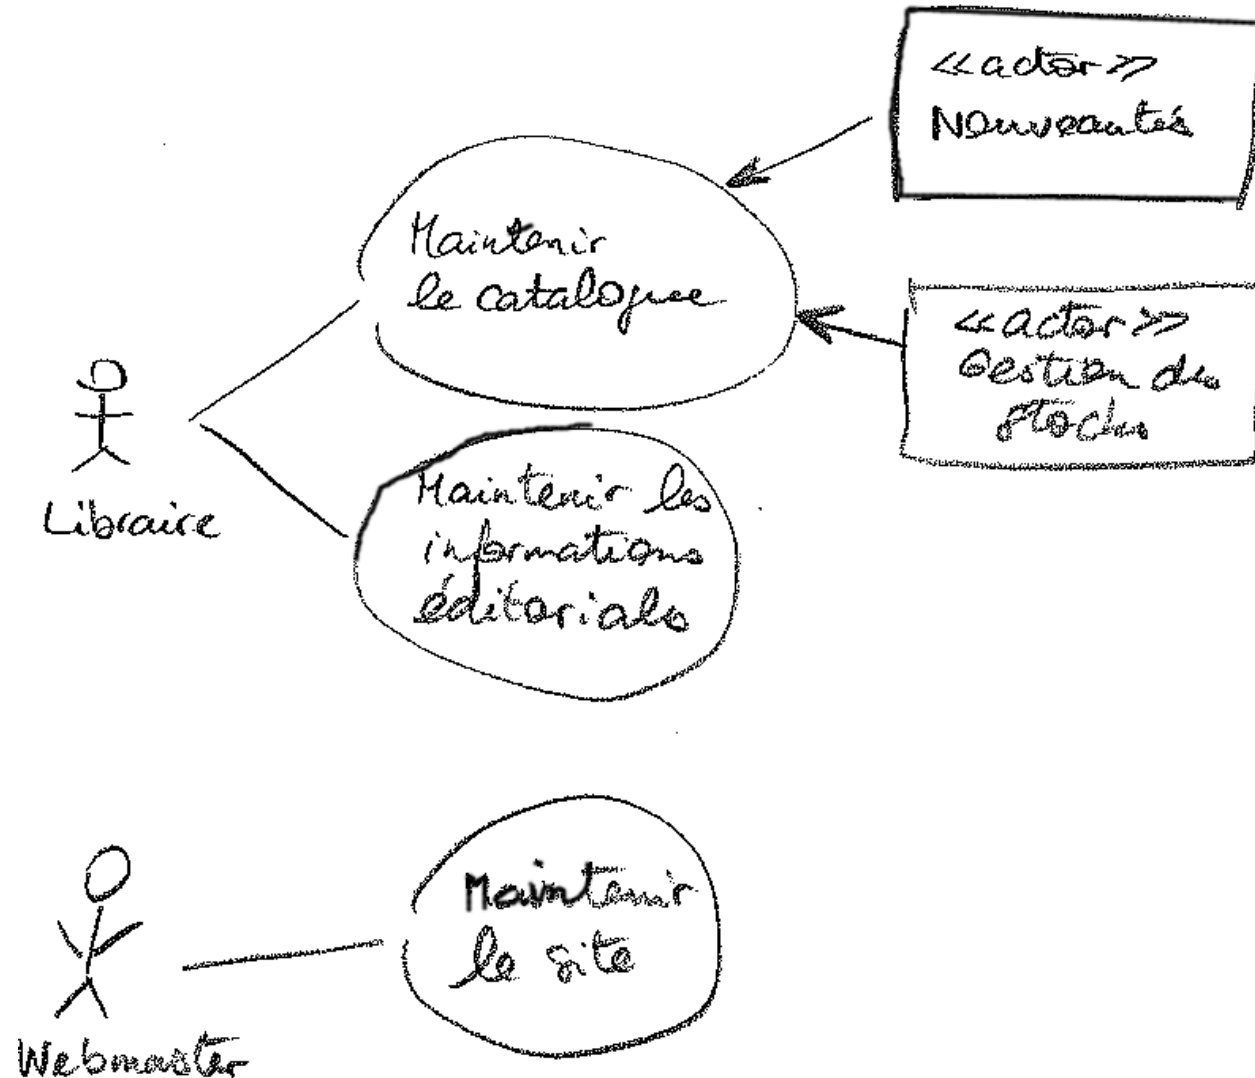 <<actor>>
Nouveautés
Maintenir
le catalogue
<<actor>>
Gestion des
stocks
Libraire
Maintenir les
informations
éditorials
Maintenir
le site
Webmaster